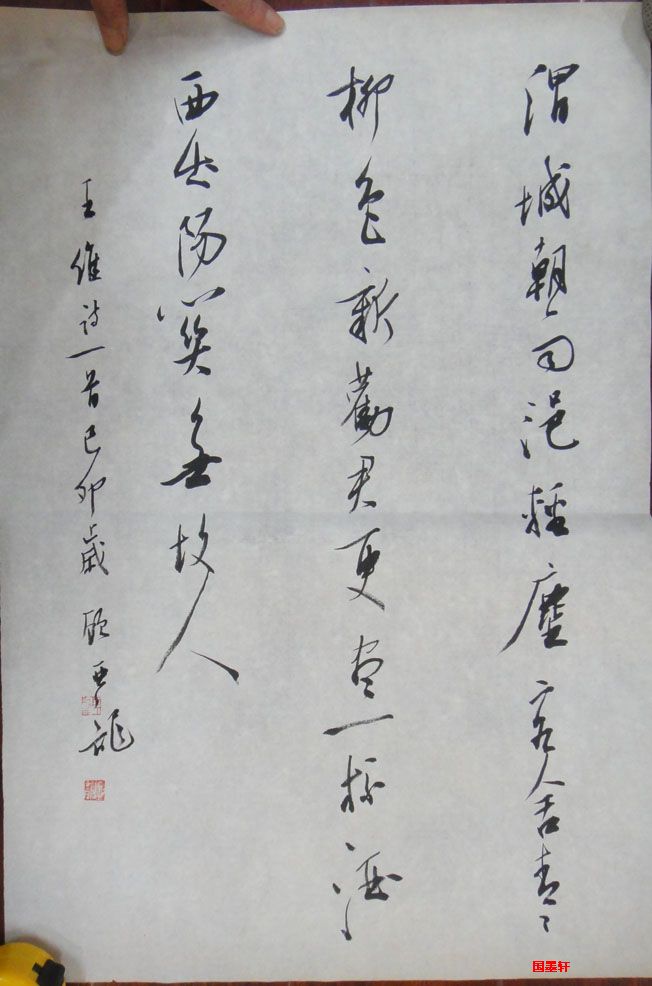 渭城朝雨浥輕塵客舍青々
柳色新勸君更盡一杯酒
西出陽關無故人
王維詩一首己卯歲顧亞龍
国墨轩